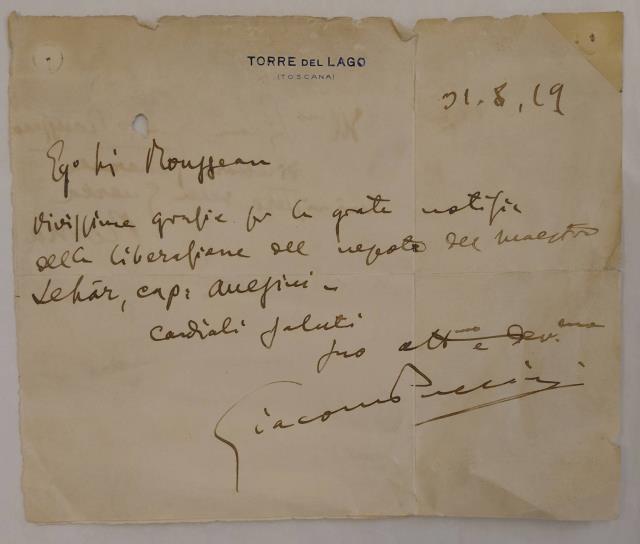 TORRE DEL LAGO
(TOSCANA)
31.8.19
Egº Si Rousseau
Vivissime grazie per la grata notizia
della liberazione del nepote del maestro
Lehár, cap: Anegini
cordiali saluti
suo att.mo e dev.mo
Giacomo Puccini